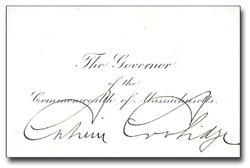 The Governor
of the
Commonwealth of Massachusetts.
Calvin Coolidge